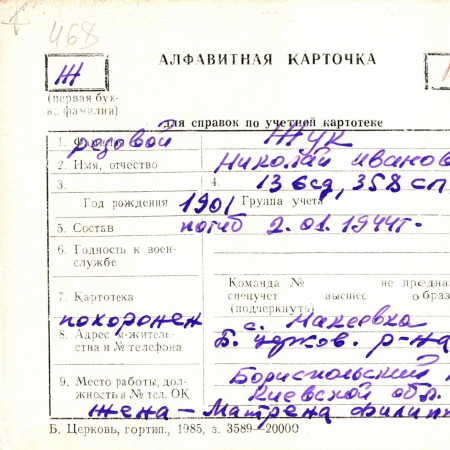 468
АЛФАВИТНАЯ КАРТОЧКА
Ж
(первая бук-
ва фамилии)
для справок по учетной картотеке
1. Фамилия рядовой Жук
2. Имя, отчество Николай Иванов
3. 4. 13 всд, 358 сп
Год рождения 1901 Группа учета
5. Состав погиб 2.01.1944г.
6. Годность к воен-
службе
Команда № не предна
7. Картотека спецучет высшее образ
(подчеркнуть)
похоронен с. Макеевка
8. Адрес м-житель-
ства и № телефона Б. Церков. р-на
Бориспольский
9. Место работы, дол-
жность и № тел. ОК Киевской обл.
жена - Матрена Филип
Б. Церковь, гортип., 1985, з. 3589—20000